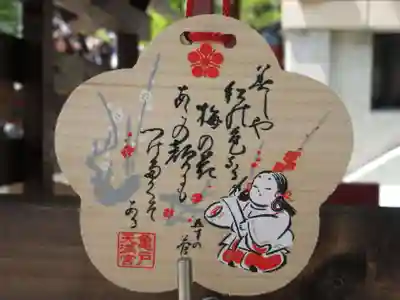 美しや
紅の色なる
梅の花
あこの顔にも
つけたくぞ
ある
亀戸
天満宮